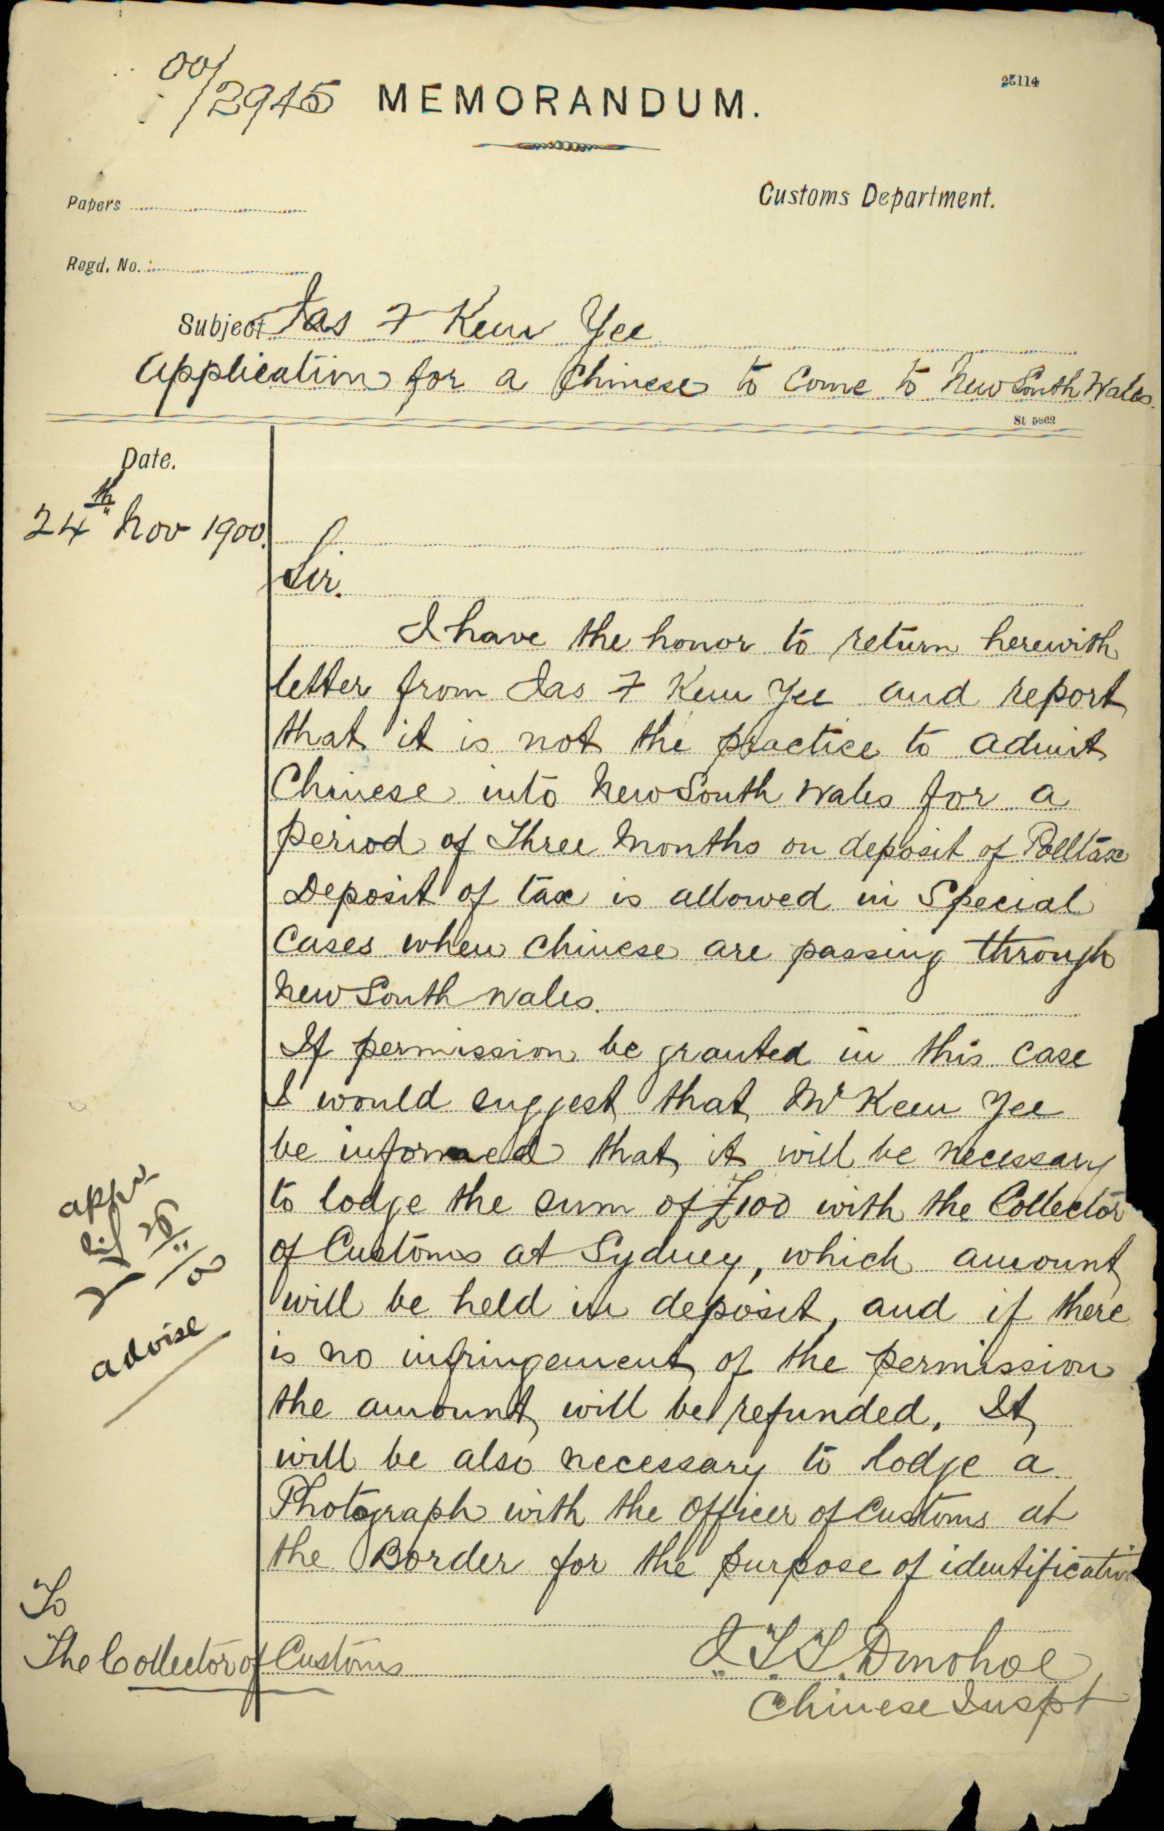 00/2945
MEMORANDUM.
25114
Papers
Customs Department.
Regd. No.
Subject Jas F Kem Yee
Application for a Chinese to come to New South Wales.
St 5862
Date.
24th Nov 1900.
Sir.
I have the honor to return herewith
letter from Jas F Kem Yee and report
that it is not the practice to admit
Chinese into New South Wales for a
period of Three Months on deposit of Polltax
Deposit of tax is allowed in Special
Cases when Chinese are passing through
New South Wales.
If permission be granted in this case
I would suggest that Mr Kem Yee
be informed that it will be necessary
to lodge the sum of £100 with the Collector
of Customs at Sydney, which amount
will be held in deposit, and if there
is no infringement of the permission
the amount will be refunded. It
will be also necessary to lodge a
Photograph with the Officer of Customs at
the Border for the purpose of identification
advise
To
The Collector of Customs
J. T. T. Donohoe
Chinese Inspt